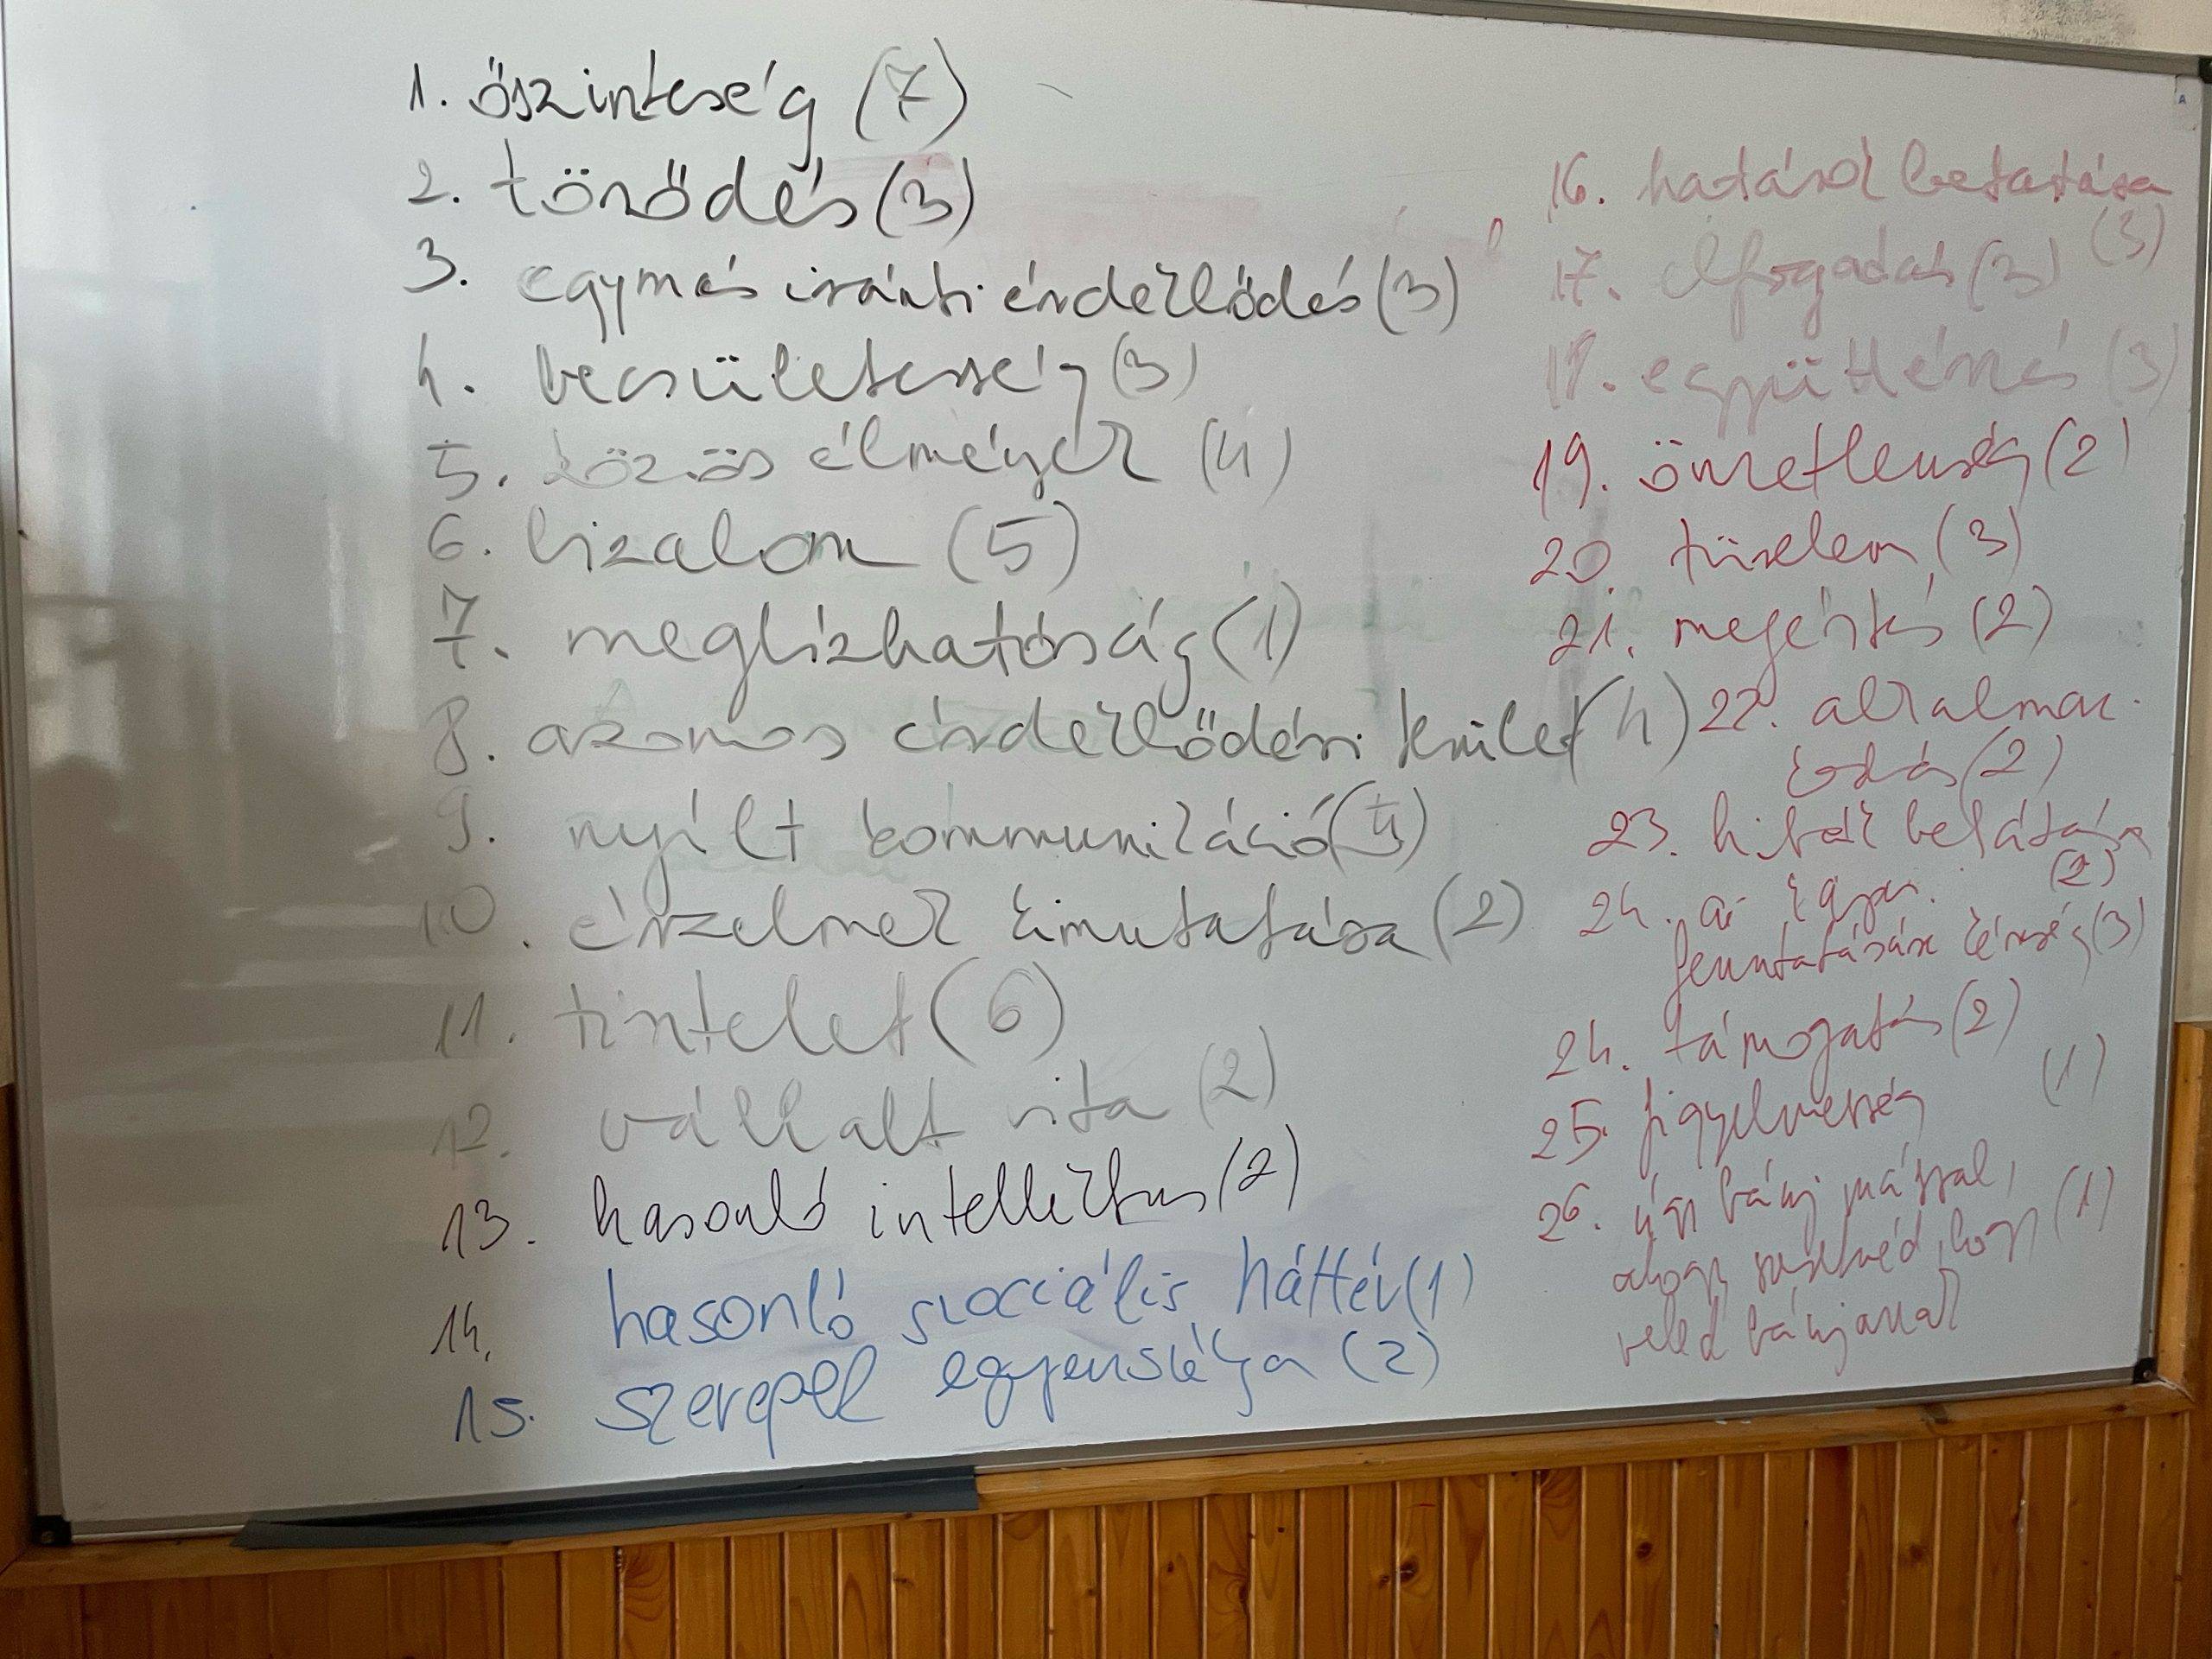 1. őszinteség (7)
2. törődés (3)
3. egymás iránti érdeklődés (3)
4. becsületesség (3)
5. közös élmények (4)
6. bizalom (5)
7. megbízhatóság (1)
8. azonos érdeklődési terület (4)
9. nyílt kommunikáció (4)
10. érzelmek kimutatása (2)
11. tisztelet (6)
12. vállalt vita (2)
13. hasonló intellektus (2)
14. hasonló szociális háttér (1)
15. szerepek egyensúlya (2)
16. határok betartása
(3)
17. elfogadás (3)
18. együttérzés (3)
19. önzetlenség (2)
20. türelem (3)
21. megértés (2)
22. alkalmaz-
kodás (2)
23. hibák belátása
(2)
24. az
fenntartására (3)
24. támogatás (2)
25. figyelmesség (1)
26. úgy bánj mással,
ahogy szeretnéd, hogy (1)
veled bánjanak